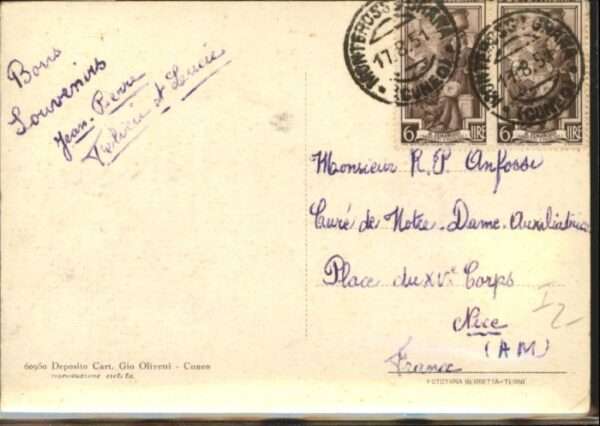 Bons
Souvenirs
Jean-Pierre
et Lucie
MONTEROSSO GRANA
17.8.51
(CUNEO)
MONTEROSSO GRANA
17.8.51
(CUNEO)
6 LIRE
6 LIRE
Monsieur R.P. Anfossi
Curé de Notre-Dame-Auxiliatrice
Place du XVe Corps
Nice
(AM)
France
60950 Deposito Cart. Gio Olivetti - Cuneo
riproduzione vietata
FOTOTIPIA BERRETTA-TERNI